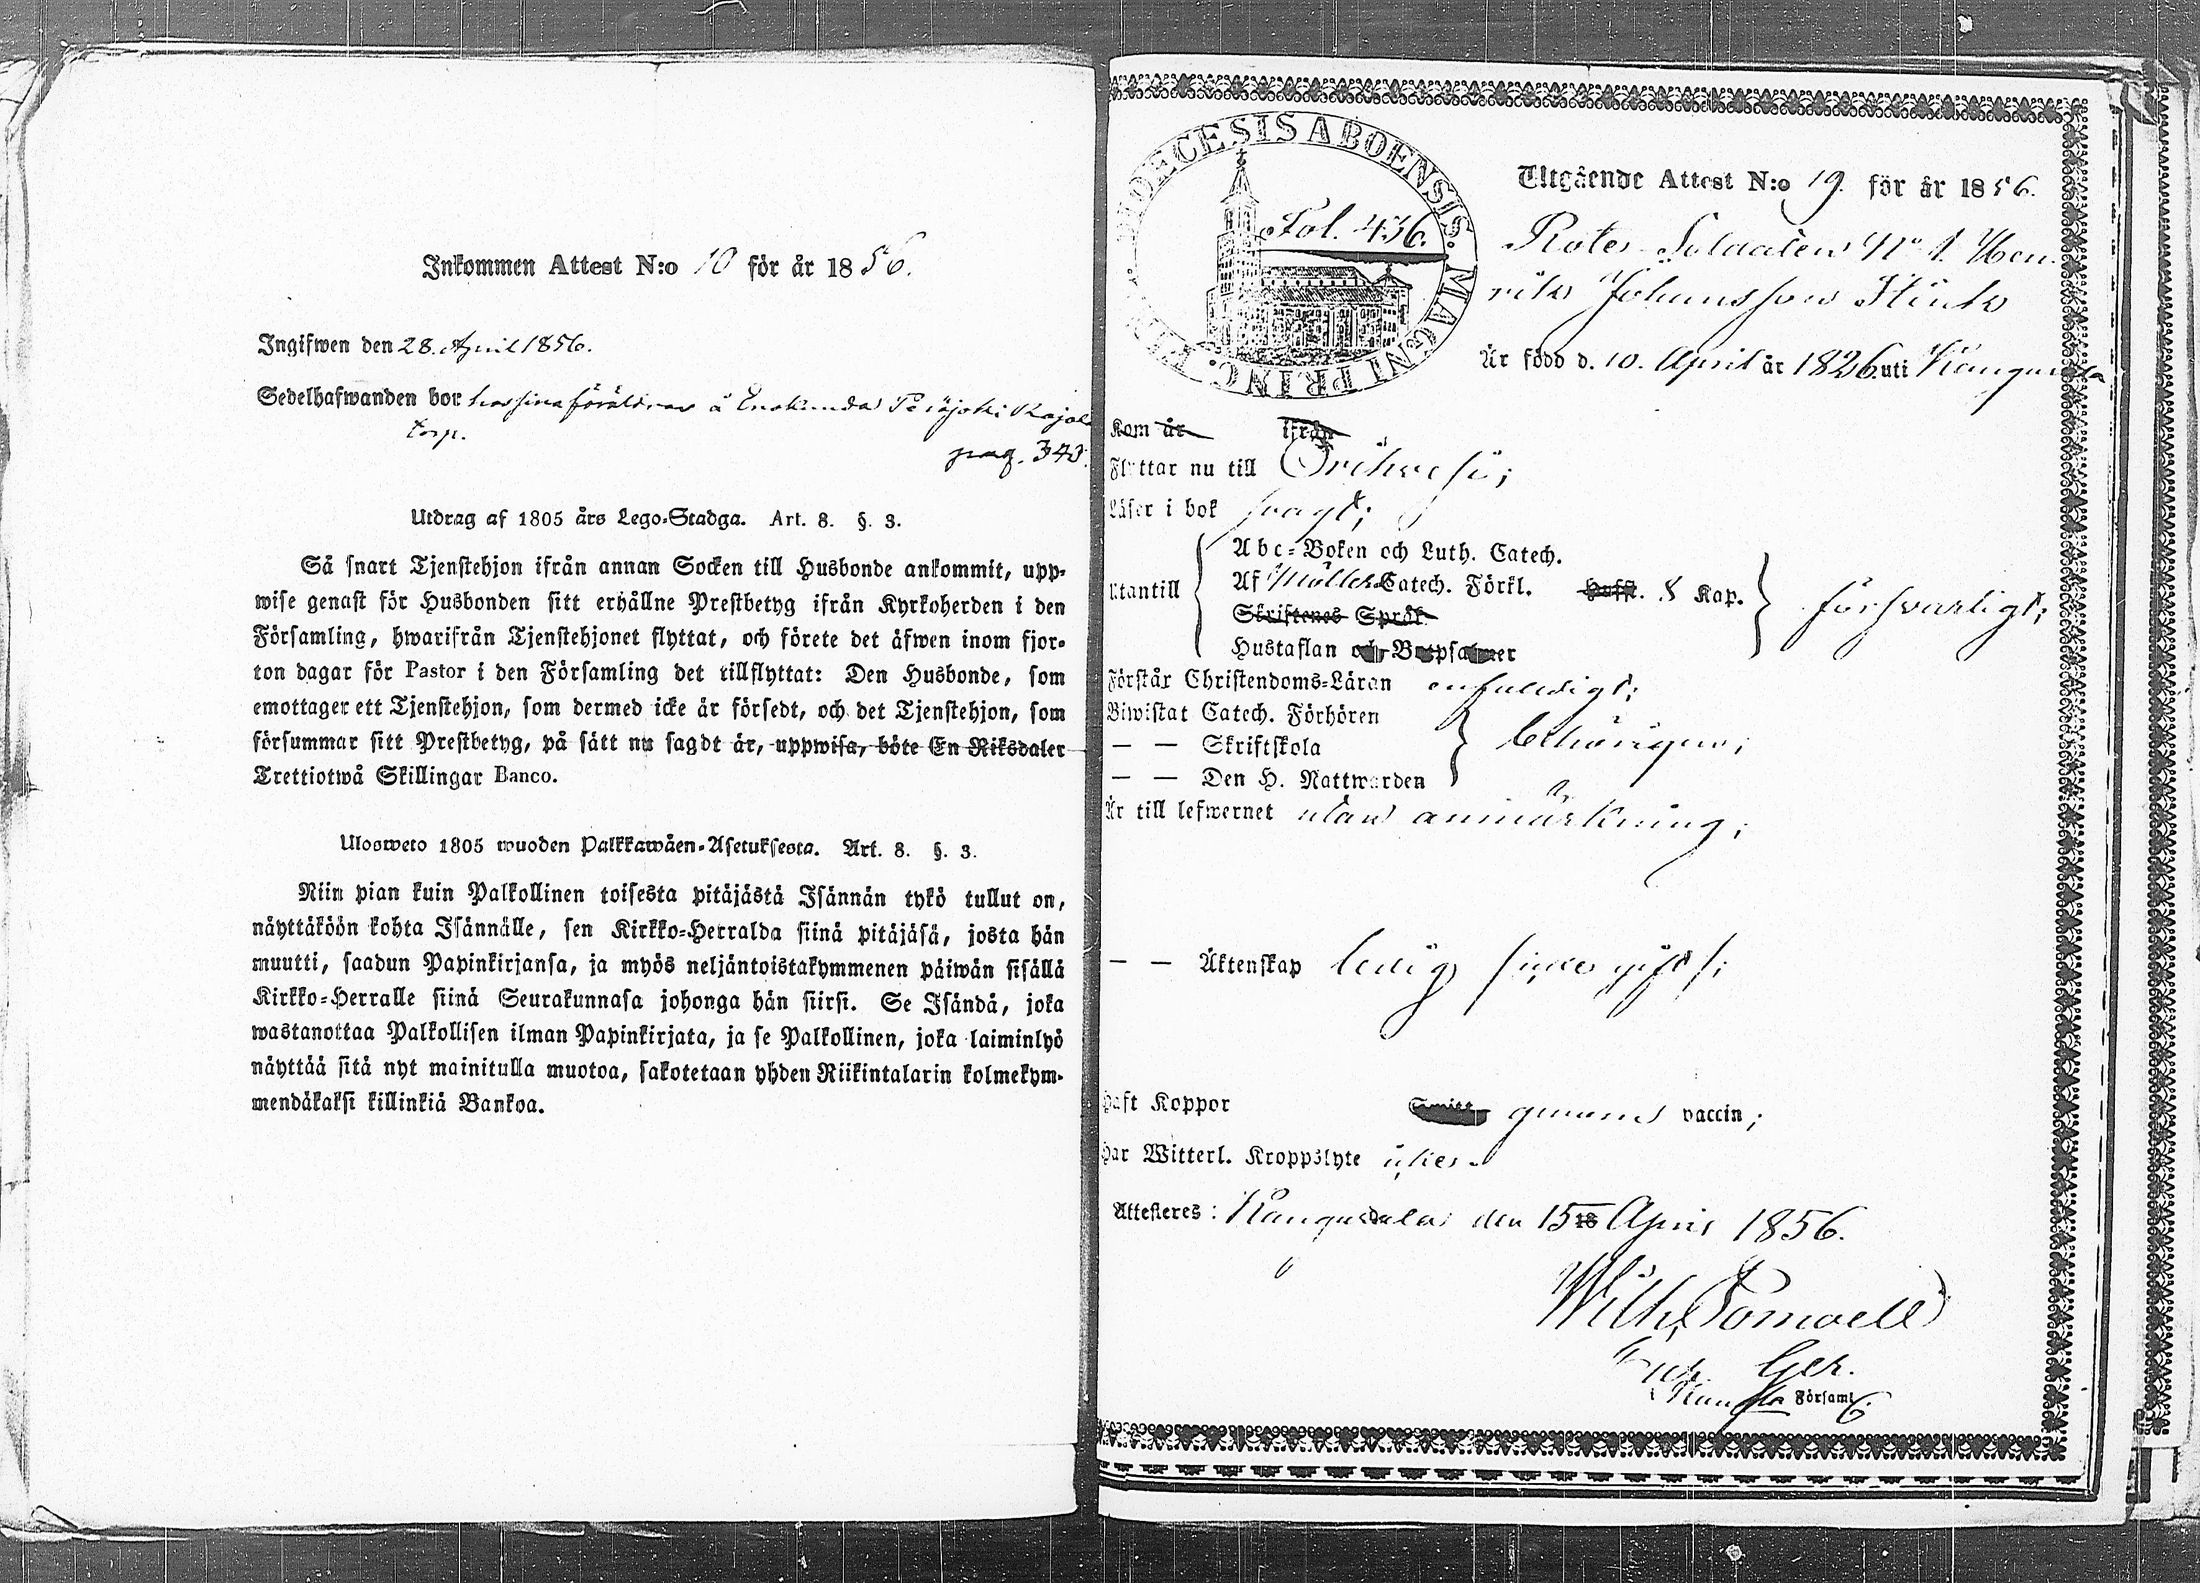 Inkommen Attest N:o 10 för år 1856.
Ingifwen den 28. April 1856.
Sedelhafwanden bor hos sina föräldrar å Enokunda Peräjoki
torp.
pag. 343.
Utdrag af 1805 års Lego-Stadga. Art. 8. §. 3.
Så snart Tjenstehjon ifrån annan Socken till Husbonde ankommit, upp-
wise genast för Husbonden sitt erhållne Prestbetyg ifrån Kyrkoherden i den
Församling, hwarifrån Tjenstehjonet flyttat, och förete det äfwen inom fjor-
ton dagar för Pastor i den Församling det tillflyttat: Den Husbonde, som
emottager ett Tjenstehjon, som dermed icke är försedt, och det Tjenstehjon, som
försummar sitt Prestbetyg, på sätt nu sagdt är, uppwisa, böte En Riksdaler
Trettiotwå Skillingar Banco.
Ulosweto 1805 wuoden Palkkawäen-Asetuksesta. Art. 8. §. 3.
Niin pian kuin Palkollinen toisesta pitäjästä Isännän tykö tullut on,
näyttäköön kohta Isännälle, sen Kirkko-Herralda siinä pitäjäsä, josta hän
muutti, saadun Papinkirjansa, ja myös neljäntoistakymmenen päiwän sisällä
Kirkko-Herralle siinä Seurakunnasa johonga hän siirsi. Se Isändä, joka
wastanottaa Palkollisen ilman Papinkirjata, ja se Palkollinen, joka laiminlyö
näyttää sitä nyt mainitulla muotoa, sakotetaan yhden Riikintalarin kolmekym-
mendäkaksi killinkiä Bankoa.
DIOECESIS ABOENSIS. MAGNI PRINC.
Fol. 436.
Utgående Attest N:o 19. för år 1856.
Rote Soldaten N:o 1. Hen-
rik Johansson Stink
Är född d. 10. April år 1826 uti Kangasala
Kom år ifrån
Flyttar nu till Orihvesi;
Läser i bok svagt;
Utantill
Abc-Boken och Luth. Catech.
Af Möllers Catech. Förkl. Hufst. 8 Kap.
Skriftenes Språk
Hustaflan och Botpsalmer
försvarligt;
Förstår Christendoms-Läran enfaldigt;
Biwistat Catech. Förhören
— — Skriftskola
— — Den H. Nattwarden
behörigen;
Är till lefwernet utan anmärkning;
— — Äktenskap ledig från gifte;
Haft Koppor genom vaccin;
Har Witterl. Kroppslyte icke.
Attesteres: Kangasala den 15 April 1856.
Wilh.
i Församl